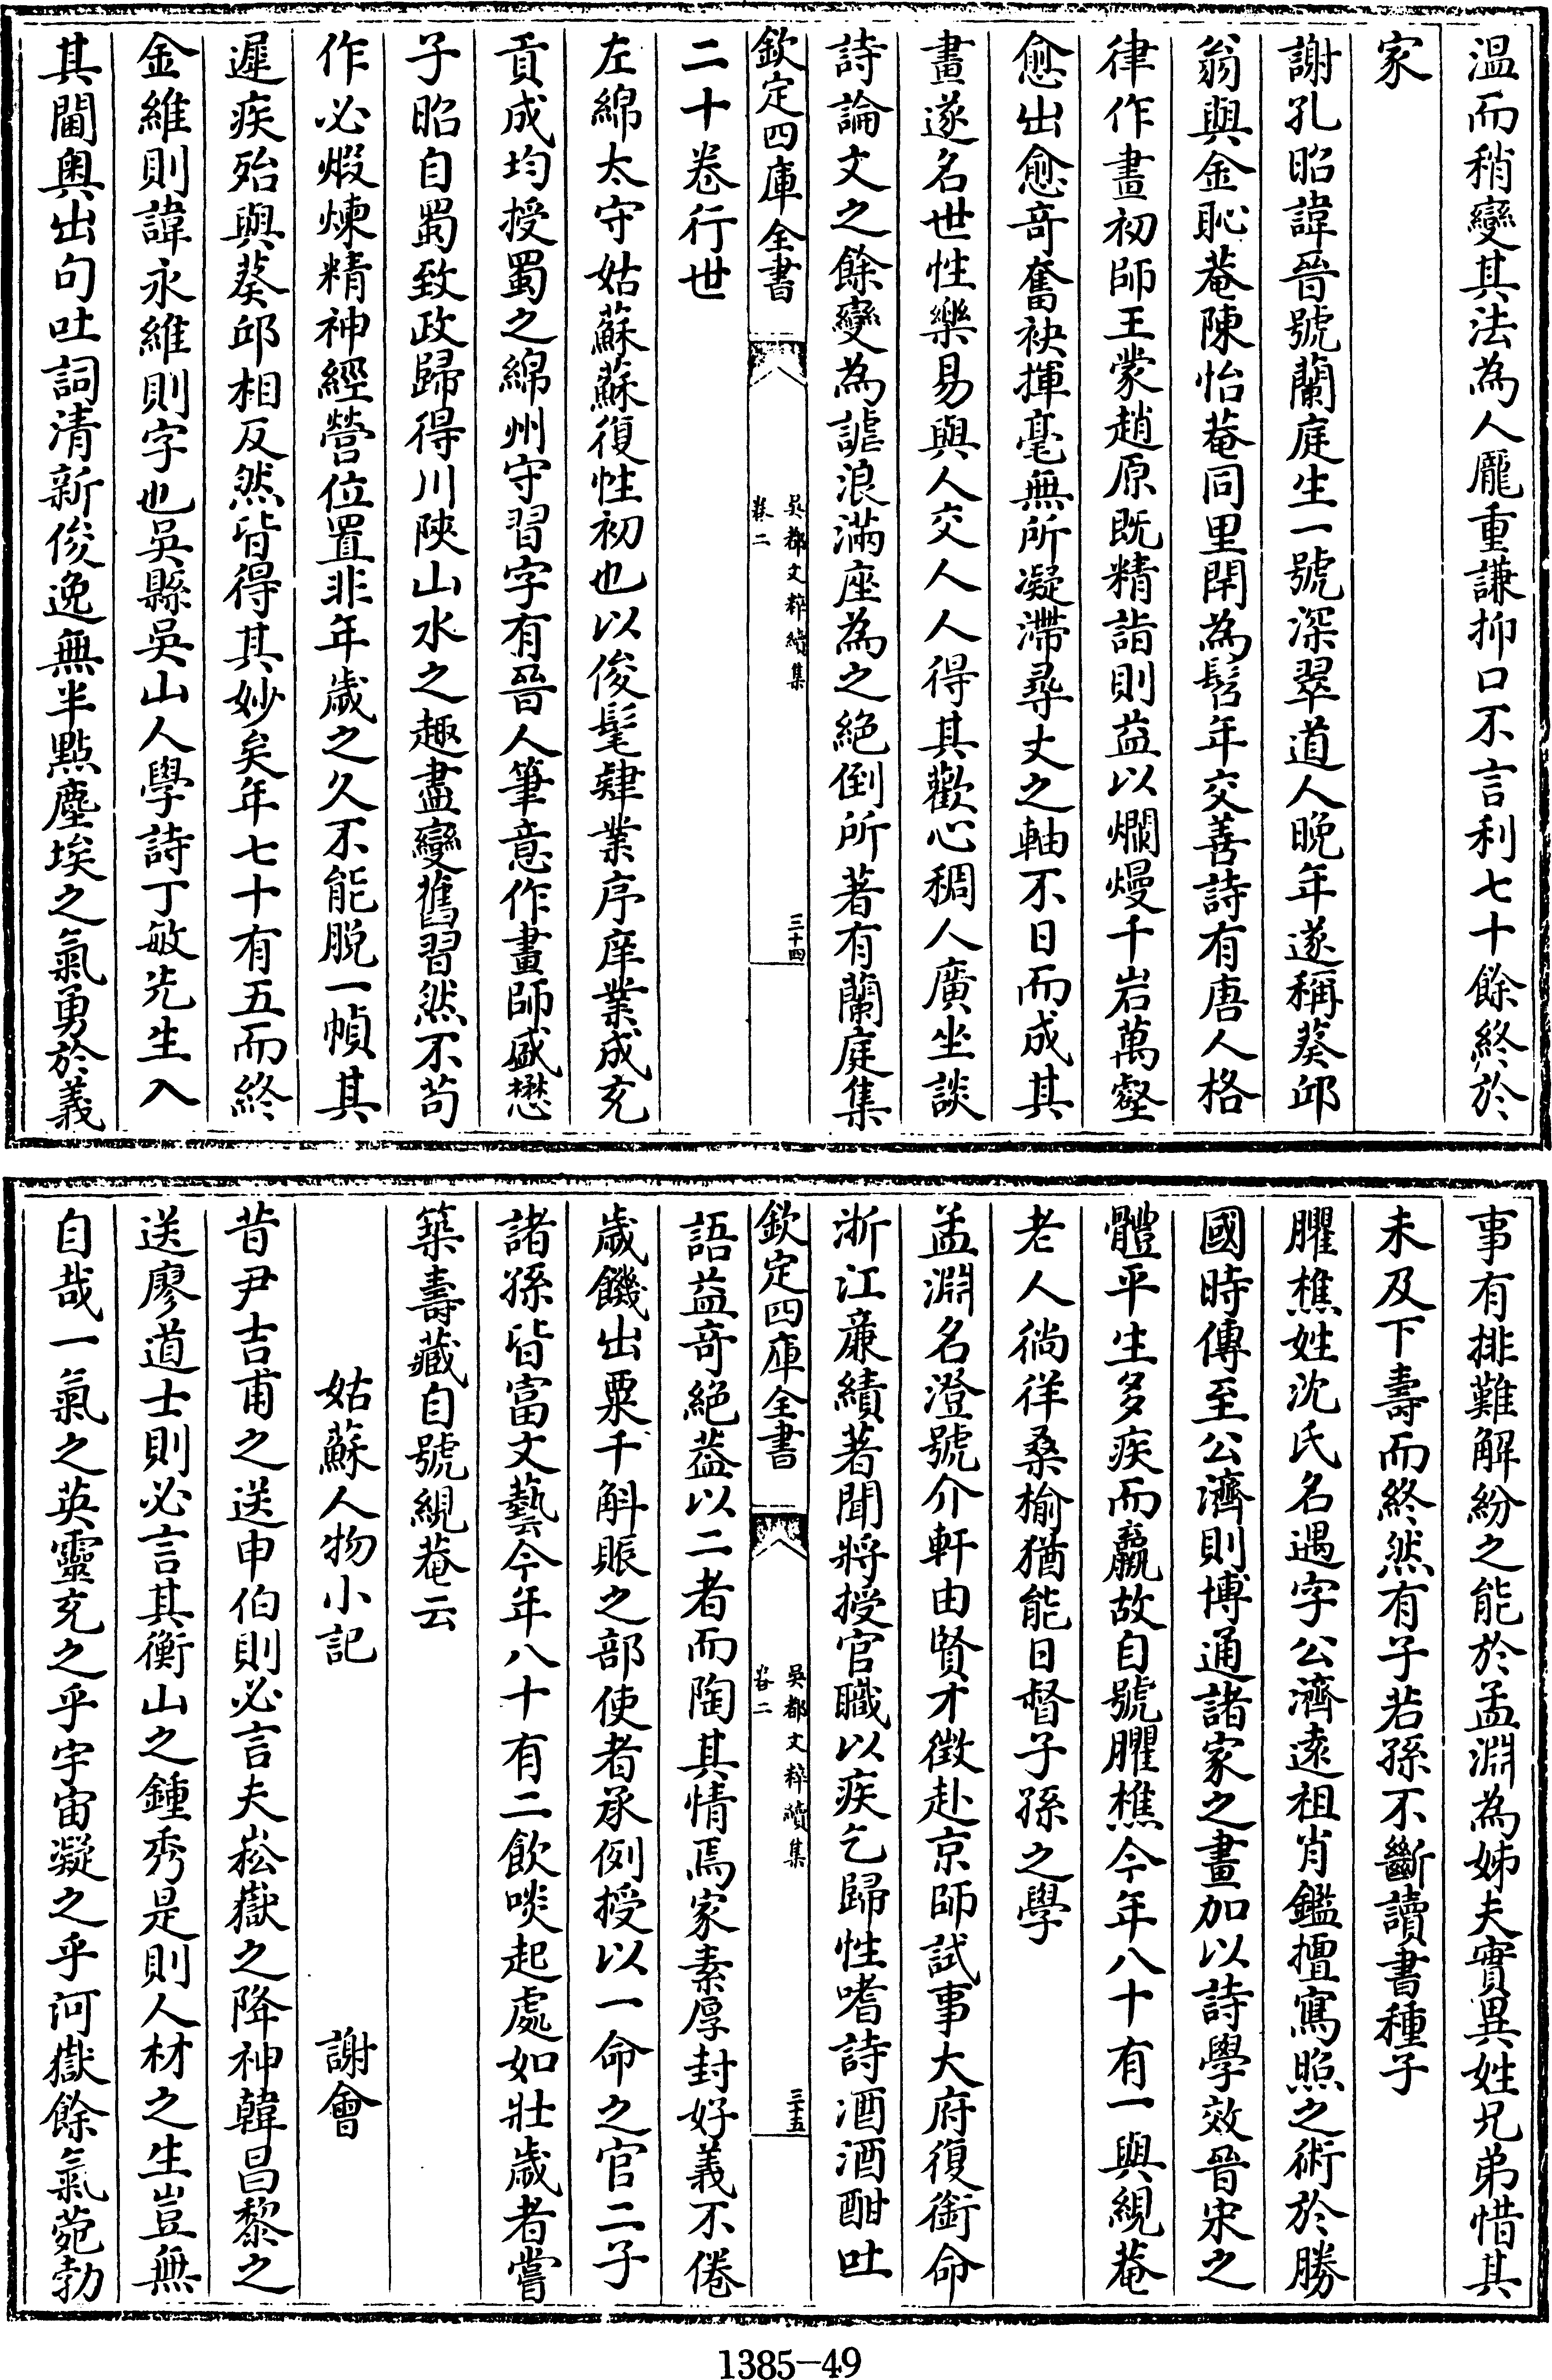 溫而稍變其法為人龎重謙抑口不言利七十餘終於
家
謝孔昭諱晉號蘭庭生一號深翠道人晚年遂稱葵邱
翁與金恥菴陳怡菴同里閈為髫年交善詩有唐人格
律作畫初師王蒙趙原既精詣則益以爛熳千岩萬壑
愈出愈竒奮袂揮毫無所凝滯尋丈之軸不日而成其
畫遂名世性樂易與人交人人得其歡心稠人廣坐談
詩論文之餘變為謔浪滿座為之絶倒所著有蘭庭集
欽定四庫全書
吳都文粹續集
卷二
三十四
二十卷行世
左綿太守姑蘇蘇復性初也以俊髦肄業序庠業成充
貢成均授蜀之綿州守習字有晉人筆意作畫師盛懋
子昭自蜀致政歸得川陝山水之趣盡變舊習然不苟
作必煅煉精神經營位置非年歲之久不能脱一幀其
遲疾殆與葵邱相反然皆得其妙矣年七十有五而終
金維則諱永維則字也吳縣吳山人學詩丁敏先生入
其閫奧出句吐詞清新俊逸無半點塵埃之氣勇於義
事有排難解紛之能於孟淵為姊夫實異姓兄弟惜其
未及下壽而終然有子若孫不斷讀書種子
臞樵姓沈氏名遇字公濟遠祖肖鑑擅寫照之術於勝
國時傳至公濟則博通諸家之畫加以詩學效晉宋之
體平生多疾而羸故自號臞樵今年八十有一與緄菴
老人徜徉桑榆猶能日督子孫之學
孟淵名澄號介軒由賢才徴赴京師試事大府復銜命
浙江亷績著聞將授官職以疾乞歸性嗜詩酒酒酣吐
欽定四庫全書
吳都文粹續集
卷二
三十五
語益竒絶葢以二者而陶其情焉家素厚封好義不倦
歲饑出粟千斛賑之部使者承例授以一命之官二子
諸孫皆富文藝今年八十有二飲啖起處如壯歲者嘗
築壽藏自號緄菴云
姑蘇人物小記　謝會
昔尹吉甫之送申伯則必言夫崧嶽之降神韓昌黎之
送廖道士則必言其衡山之鍾秀是則人材之生豈無
自哉一氣之英靈充之乎宇宙凝之乎河嶽餘氣菀勃
1385-49